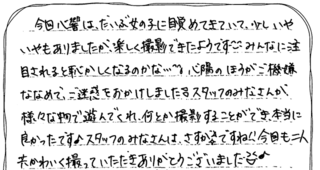 今回心響は、だいぶ女の子に目覚めてきていて、少しいや
いやもありましたが、楽しく撮影できたようです〜みんなに注
目されると恥かしくなるのかな…〜心陽のほうがご機嫌
ななめで、ご迷惑をおかけしました。スタッフのみなさんが
様々な物で遊んでくれ、何とか撮影することができ、本当に
良かったです♪スタッフのみなさんは、さすがですね!!今回も二人
ともかわいく撮っていただきありがとうございました♪